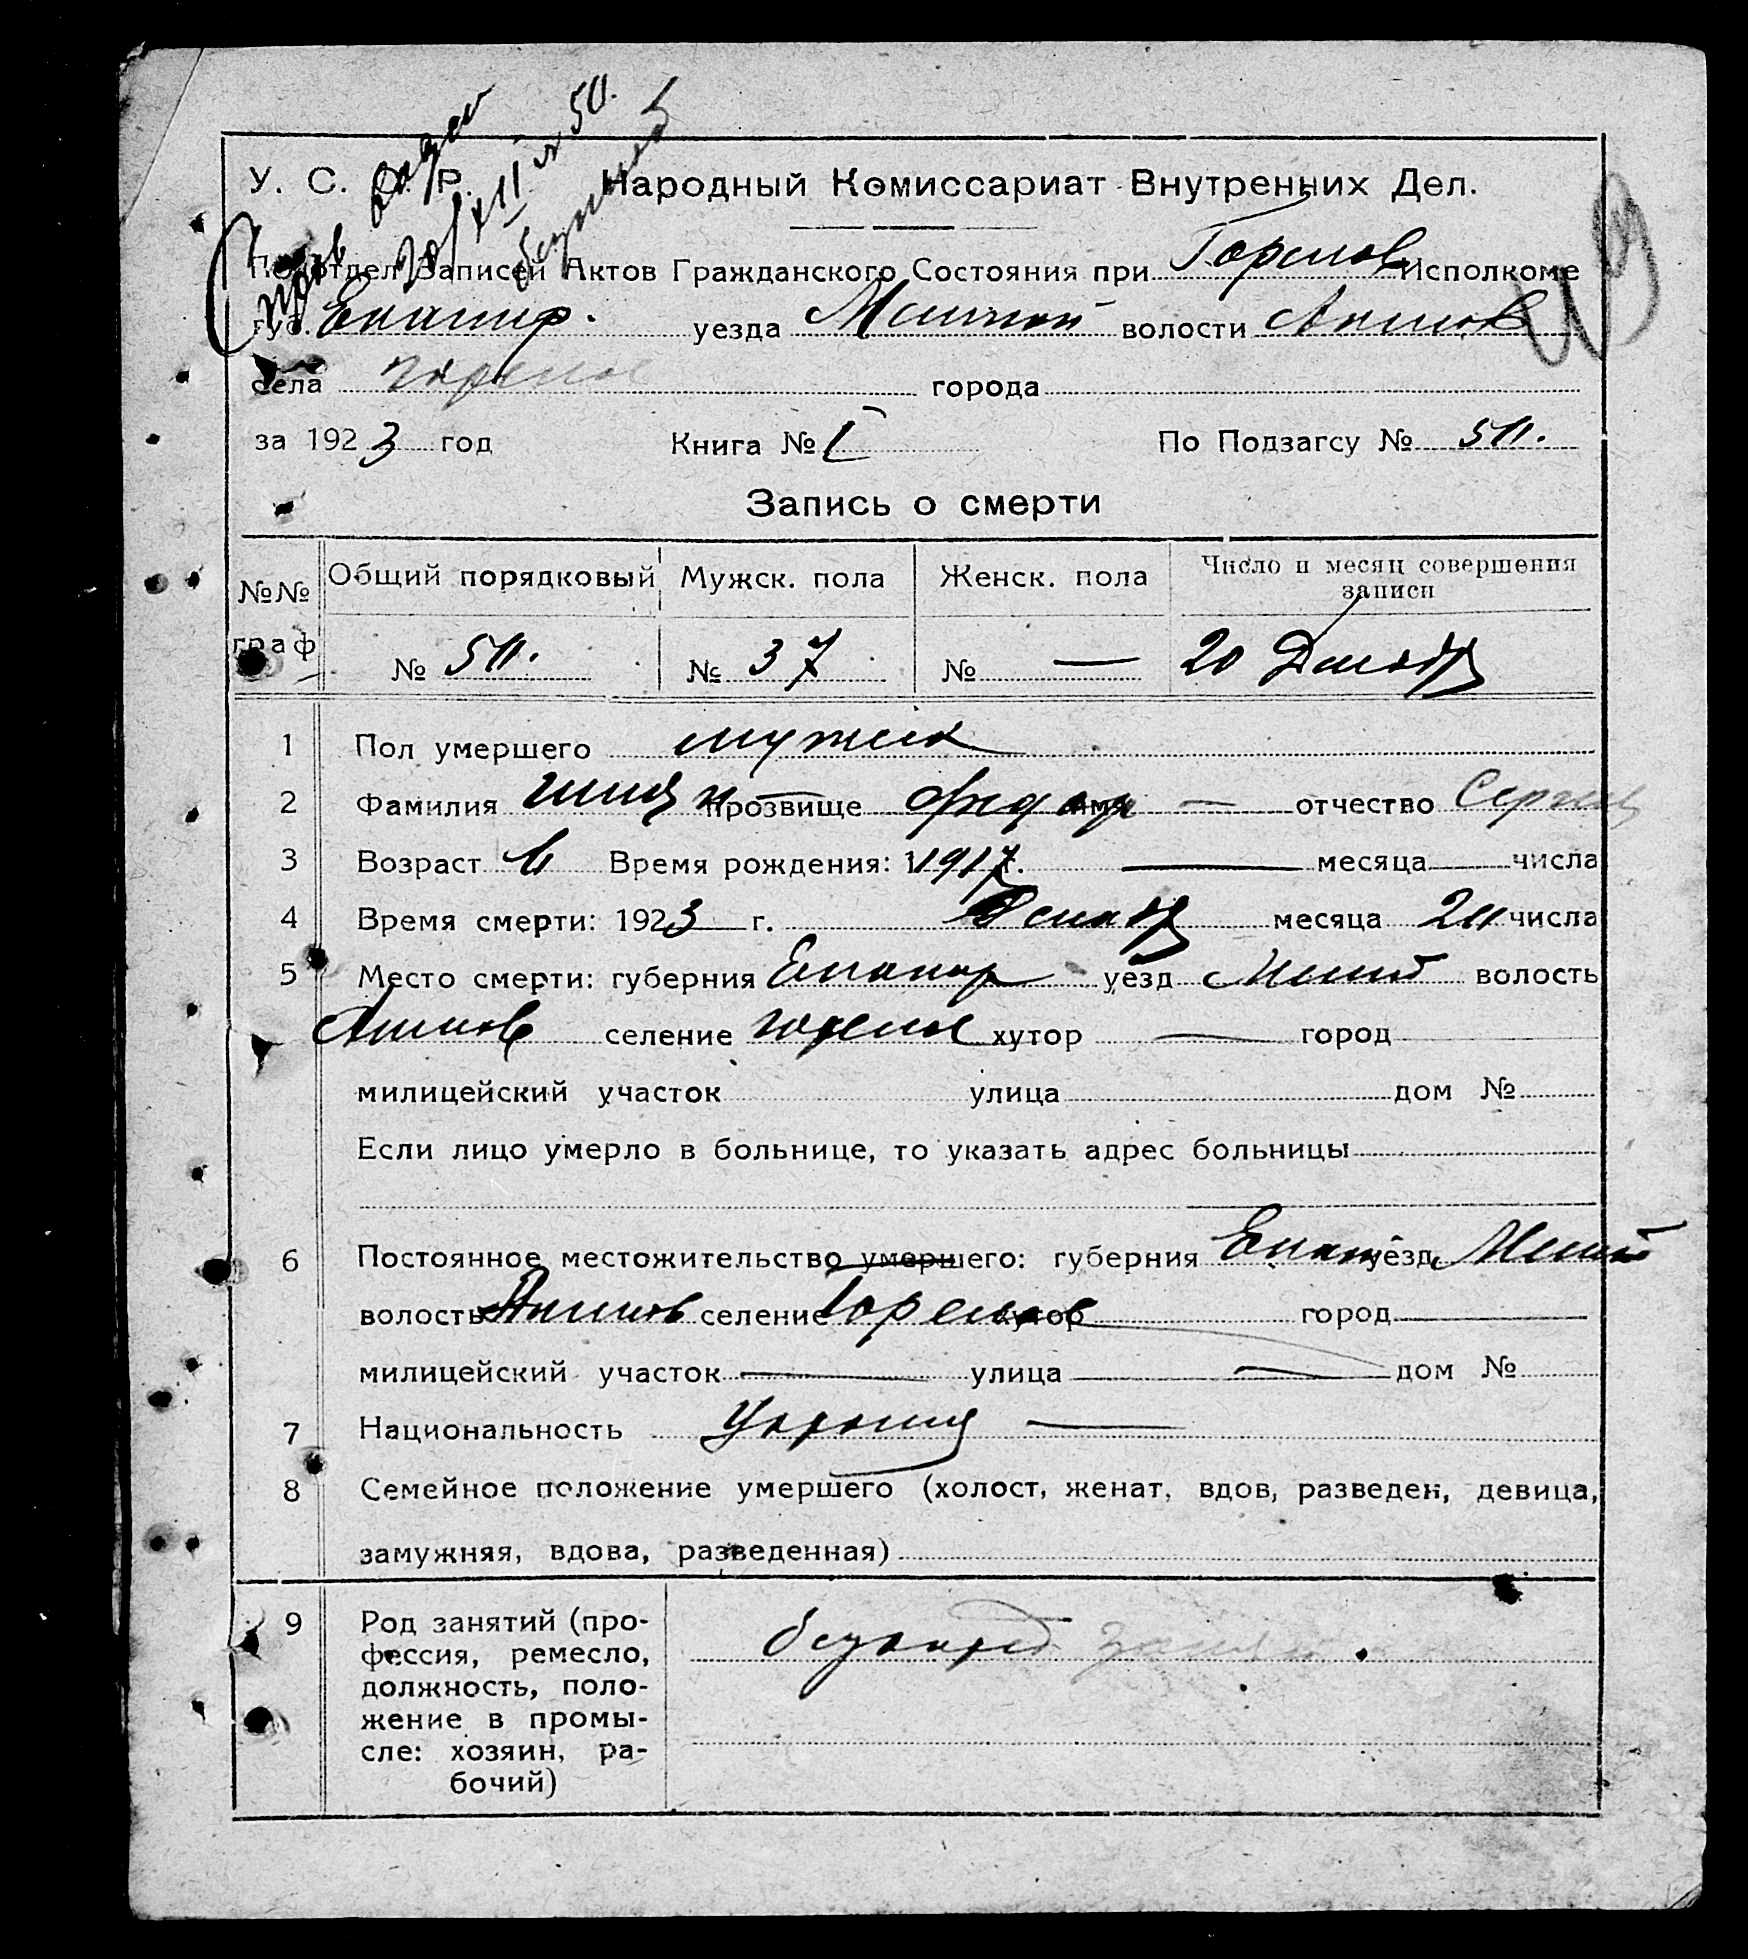 У. С. С. Р. Народный Комиссариат Внутренних Дел.
Подотдел Записей Актов Гражданского Состояния при Горелов Исполкоме
губ. Екатер. уезда волости Акимов
села горелое города
за 1923 год Книга № I По Подзагсу №
Запись о смерти
№№ граф Общий порядковый Мужск. пола Женск. пола Число и месяц совершения записи
№ № 37 № — 20 Декабр
1 Пол умершего мужск
2 Фамилия прозвище Федор имя — отчество Сергеев
3 Возраст 6 Время рождения: 1917 г. — месяца числа
4 Время смерти: 1923 г. Декабр месяца числа
5 Место смерти: губерния Екатер уезд Мелит волость
Акимов селение горелое хутор — город
милицейский участок улица дом №
Если лицо умерло в больнице, то указать адрес больницы
6 Постоянное местожительство умершего: губерния Екат уезд Мелит
волость Акимов селение Горелов хутор город
милицейский участок — улица — дом №
7 Национальность Украинц —
8 Семейное положение умершего (холост, женат, вдов, разведен, девица,
замужняя, вдова, разведенная)
9 Род занятий (про-
фессия, ремесло,
должность, поло-
жение в промы-
сле: хозяин, ра-
бочий)